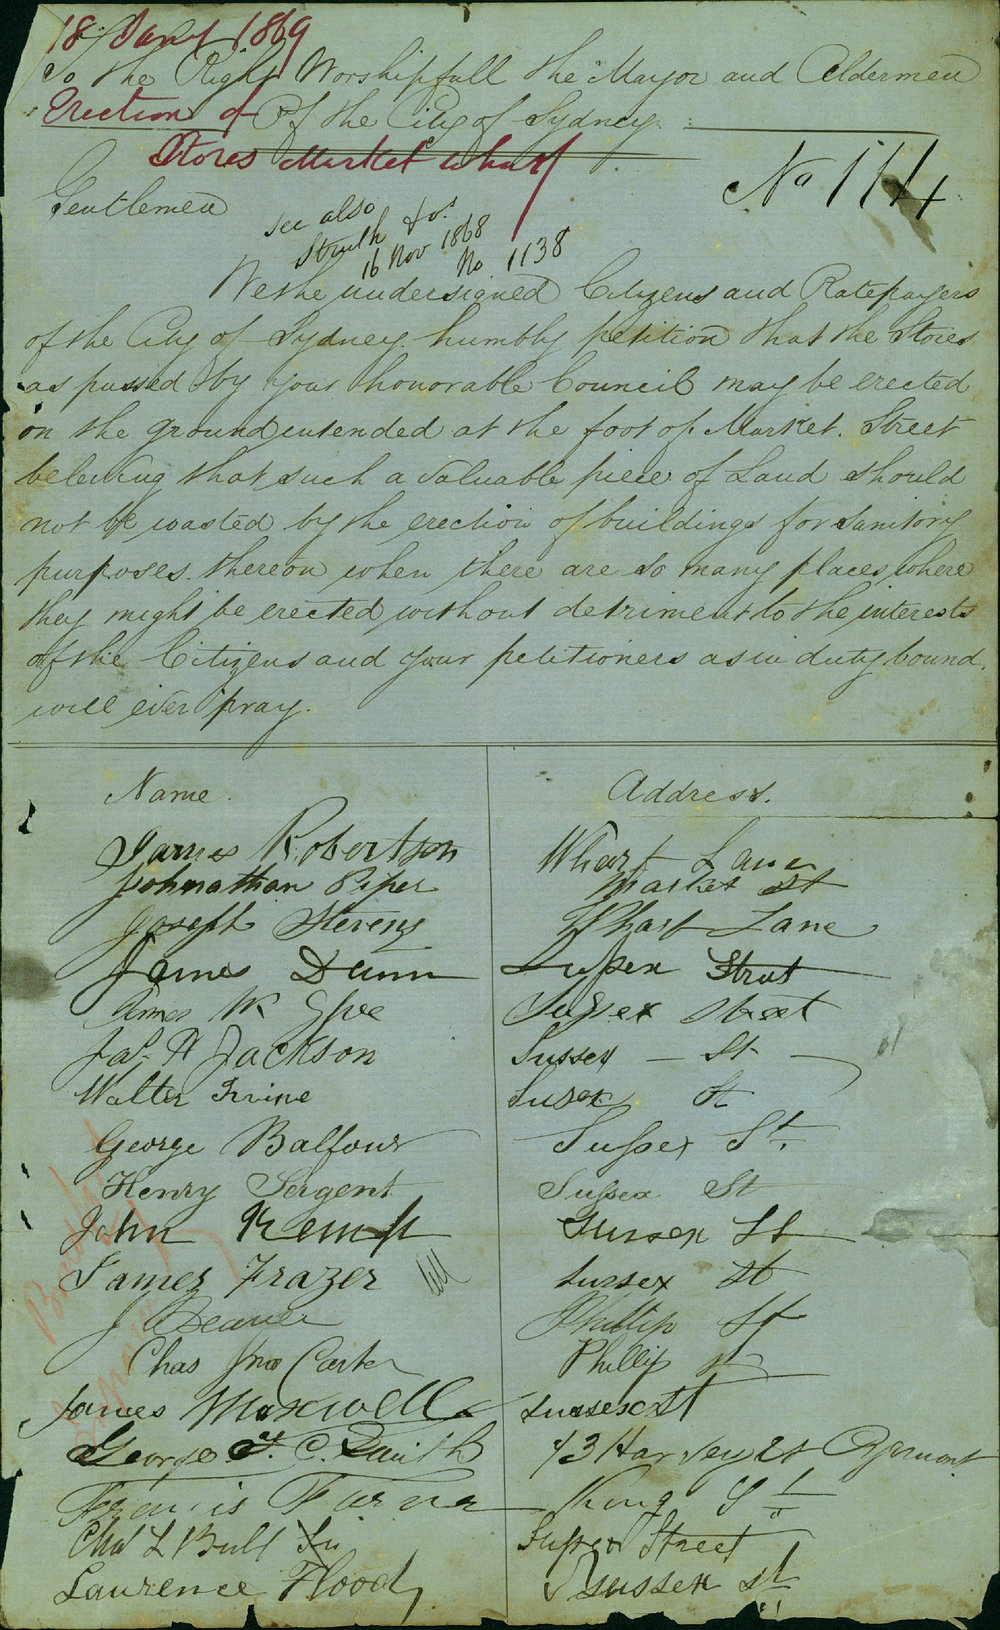 18 Jany 1869
To the Right Worshipfull the Mayor and Aldermen
Erection of
Of the City of Sydney
Stores Market Wharf
No 1114
Gentlemen
see also
Struth & Co.
16 Nov 1868
No 1138
We the undersigned Citizens and Ratepayers
of the City of Sydney humbly petition that the Stores
as passed by your honorable Council may be erected
on the ground intended at the foot of Market Street
beleiving that such a valuable piece of Land should
not be wasted by the erection of buildings for sanitory
purposes. thereon when there are so many places where
they might be erected without detriment to the interests
of the Citizens and your petitioners as in duty bound
will ever pray.
Name. Address.
James Robertson Wharf Lane
Johnathan Piper Market St
Joseph Stevens Wharf Lane
James Dunn Sussex Street
James W Sussex Street
Jas. H Jackson Sussex St
Walter Irvine Susex St
George Balfour Sussex St.
Henry Sergent Sussex St
John Kemp Sussex St
James Frazer Sussex St
J Phillip St
Chas Jno Carter Phillip st
James Maxwell Sussex St
George F. C. Smith 43 Harvey St Pyrmont
Francis Turner King St
Chas L Bull Sussex Street
Laurence Flood Sussex st